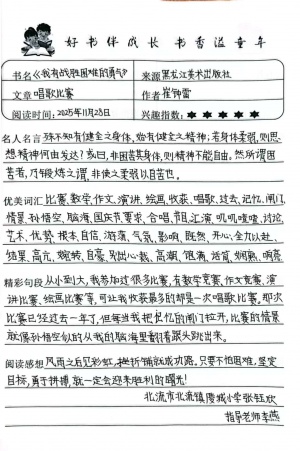 好书伴成长 书香溢童年
书名《我有战胜困难的勇气》 来源 黑龙江美术出版社
文章 唱歌比赛 作者 崔钟雷
阅读时间：2025年11月23日 兴趣指数：★★★★★
名人名言 殊不知有健全之身体，始有健全之精神；若身体柔弱，则思
想精神何由发达？或曰，非困苦其身体，则精神不能自由。然所谓困
苦者，乃锻炼之谓，非使之柔弱以自苦也。
优美词汇 比赛、数学、作文、演讲、绘画、收获、唱歌、过去、记忆、闸门、
情景、孙悟空、脑海、国庆节、要求、合唱、节目、汇演、叽叽喳喳、讨论、
艺术、优势、根本、自信、游荡、气氛、影响、既然、开心、全力以赴、
结果、高亢、婉转、自豪、别出心裁、高潮、饱满、话音、炯炯、嘹亮
精彩句段 从小到大，我参加过很多比赛，有数学竞赛、作文竞赛、演
讲比赛、绘画比赛等，可让我收获最多的却是一次唱歌比赛。那次
比赛已经过去一年了，但每当我把记忆的闸门拉开，比赛的情景
就像孙悟空似的从我的脑海里翻着跟头跳出来。
阅读感想 风雨之后见彩虹，挫折铺就成功路。只要不怕困难，坚定
目标，勇于拼搏，就一定会迎来胜利的曙光！
北流市北流镇陵城小学张钰欣
指导老师李燕